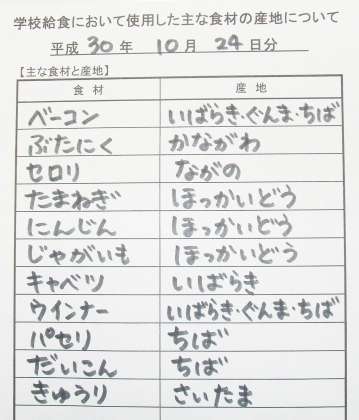 学校給食において使用した主な食材の産地について
平成 30 年 10 月 24 日分
【主な食材と産地】
食 材 産 地
ベーコン いばらき・ぐんま・ちば
ぶたにく かながわ
セロリ ながの
たまねぎ ほっかいどう
にんじん ほっかいどう
じゃがいも ほっかいどう
キャベツ いばらき
ウインナー いばらき・ぐんま・ちば
パセリ ちば
だいこん ちば
きゅうり さいたま